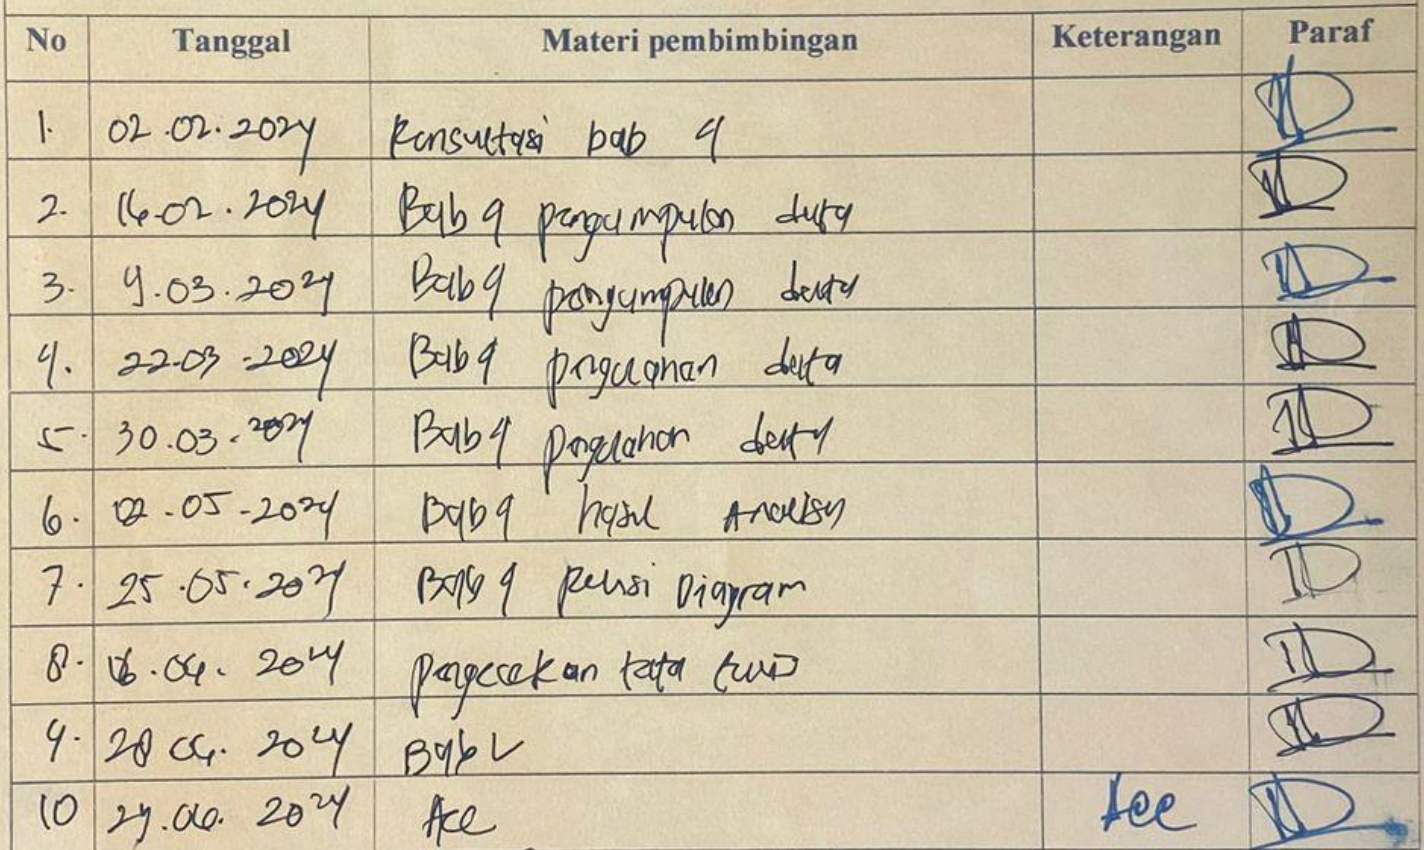 No Tanggal Materi pembimbingan Keterangan Paraf
1. 02.02.2024 Konsultasi bab 4
2. 16.02.2024 Bab 4 pengumpulan data
3. 9.03.2024 Bab 4 pengumpulan data
4. 22.03.2024 Bab 4 pengolahan data
5. 30.03.2024 Bab 4 pengolahan data
6. 02.05.2024 Bab 4 hasil Analisis
7. 25.05.2024 Bab 4 Revisi Diagram
8. 06. 2024 pengecekan tata tulis
9. 28 06. 2024 Bab V
10 29.06. 2024 Acc Acc